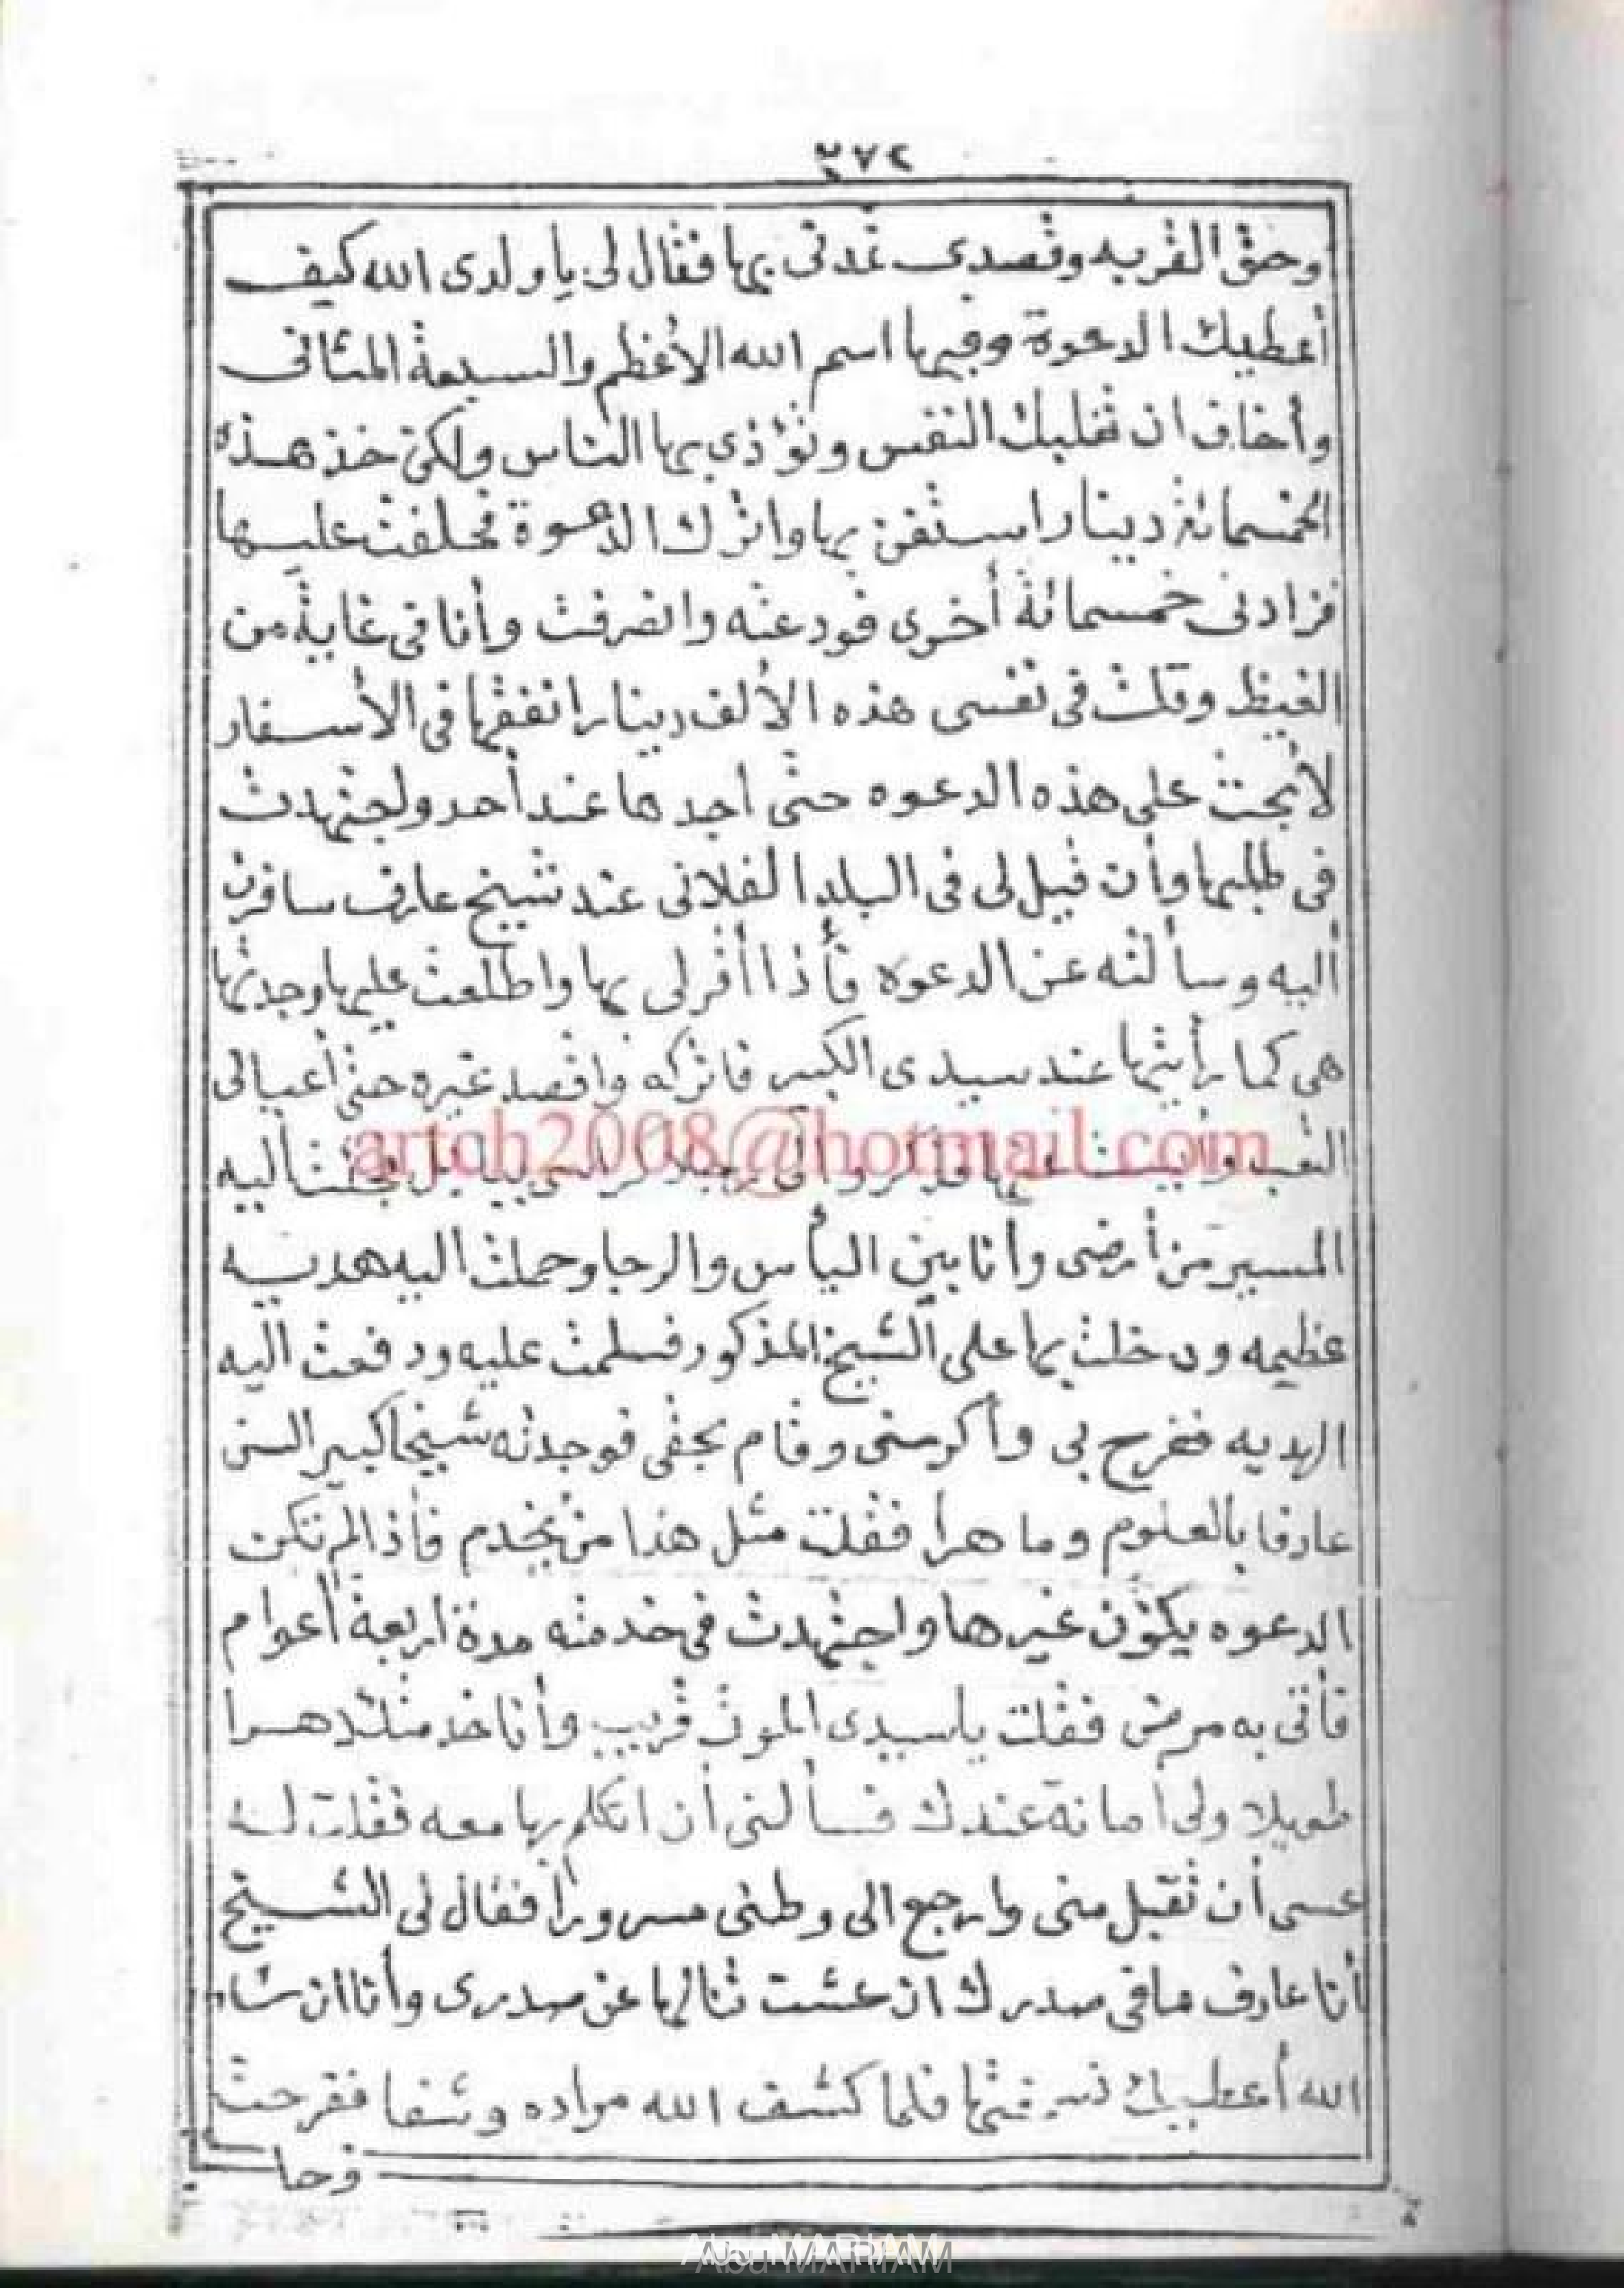 ٢٧٢
وحق القربه وقصدى تمدنى بها فقال لى يا ولدى الله كيف
أعطيك الدعوة وفيها اسم الله الأعظم والسبعة المثانى
وأخاف ان تغلبك النفس وتؤذى بها الناس ولكن خذ هذه
الخمسمائة دينارا استعن بها واترك الدعوة فحلفت عليها
فزادنى خمسمائة أخرى فودعته وانصرفت وأنا فى غاية من
الغيظ وقلت فى نفسى هذه الألف دينار انفقها فى الأسفار
لأبحث على هذه الدعوه حتى اجدها عند أحد ولجتهدت
فى طلبها وأن قيل لى فى البلد الفلانى عند شيخ عارف سافرت
أليه وسألته عن الدعوه فأذا أقر لى بها واطلعت عليها وجدتها
هى كما رأيتها عند سيدى الكبير فاتركه واقصد غيره حتى أعيانى
التعب فجئت أليه
المسير من أرضى وأنا بين اليأس والرجا وحملت أليه هديه
عظيمه ودخلت بها على الشيخ المذكور فسلمت عليه ودفعت أليه
الهديه ففرح بى وأكرمنى وقام بحقى فوجدته شيخا كبير السن
عارفا بالعلوم وماهرا فقلت مثل هذا من يخدم فأذا لم تكن
الدعوه يكون غيرها واجتهدت فى خدمته مدة اربعة أعوام
فأتى به مرض فقلت ياسيدى الموت قريب وأنا خدمتك دهرا
طويلا ولى أمانة عندك فسألنى أن اتكلم بها معه فقلت له
عسى أن تقبل منى وارجع الى وطنى مسرورا فقال لى الشيخ
أنا عارف مافى صدرك ان عشت تنالها عن صدرى وأنا ان شاء
الله أعطيك فلما كشف الله مراده وشفا ففرحت
وحا
artch2008@hotmail.com
Abu MARIAM